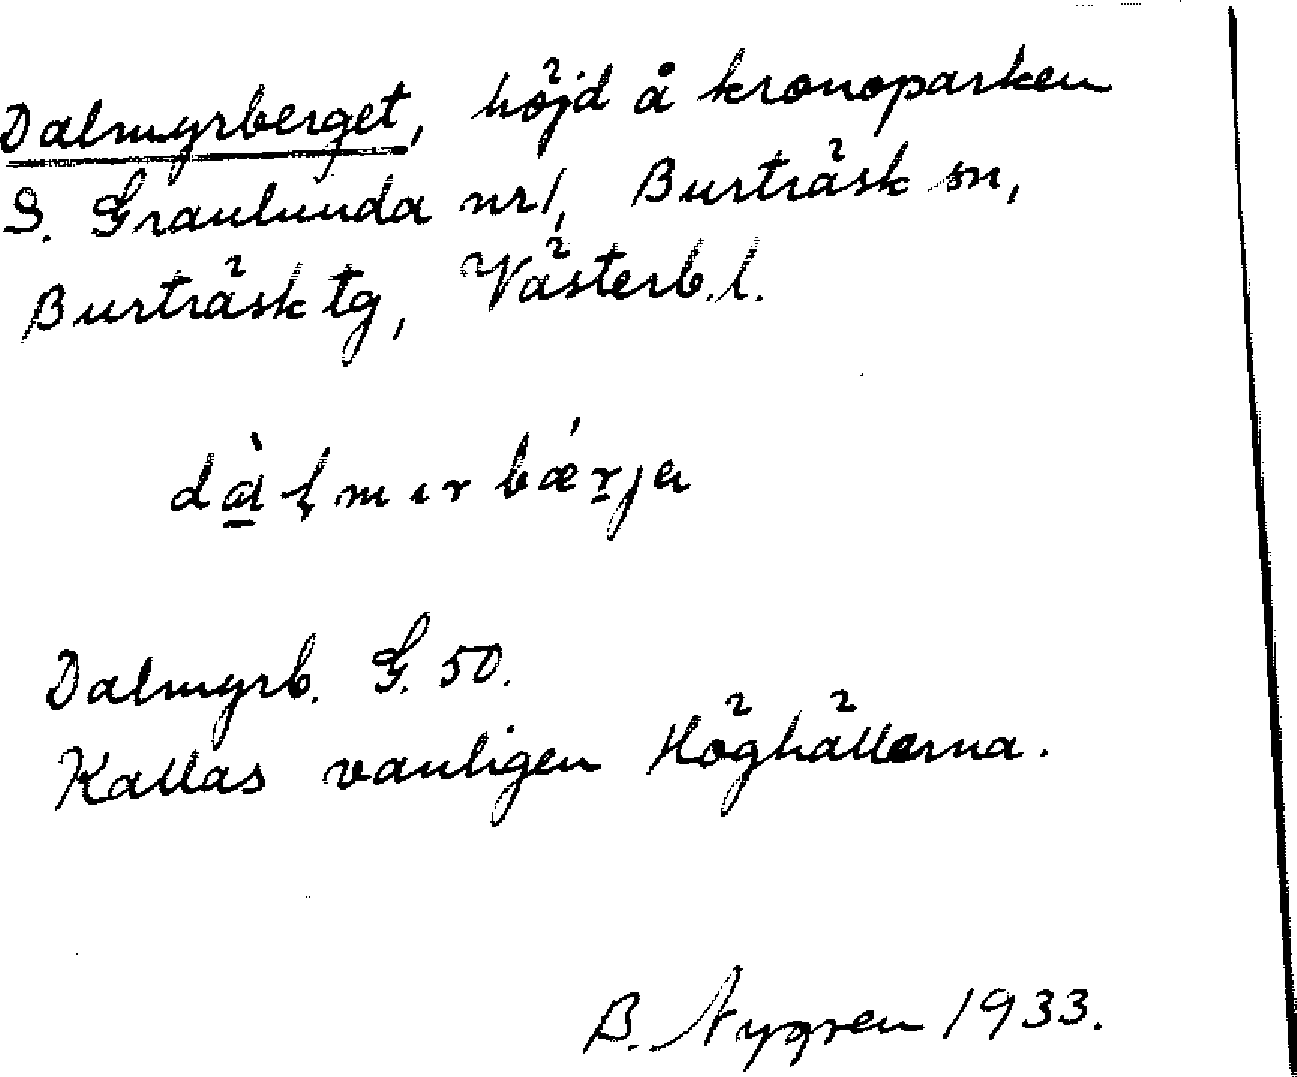 Dalmyrberget, höjd å kronoparken
S. Granlunda nr 1, Burträsk sn,
Burträsk tg, Västerb. l.
Dalmyrb. G. 50.
Kallas vanligen Höghällerna.
B. Nygren 1933.